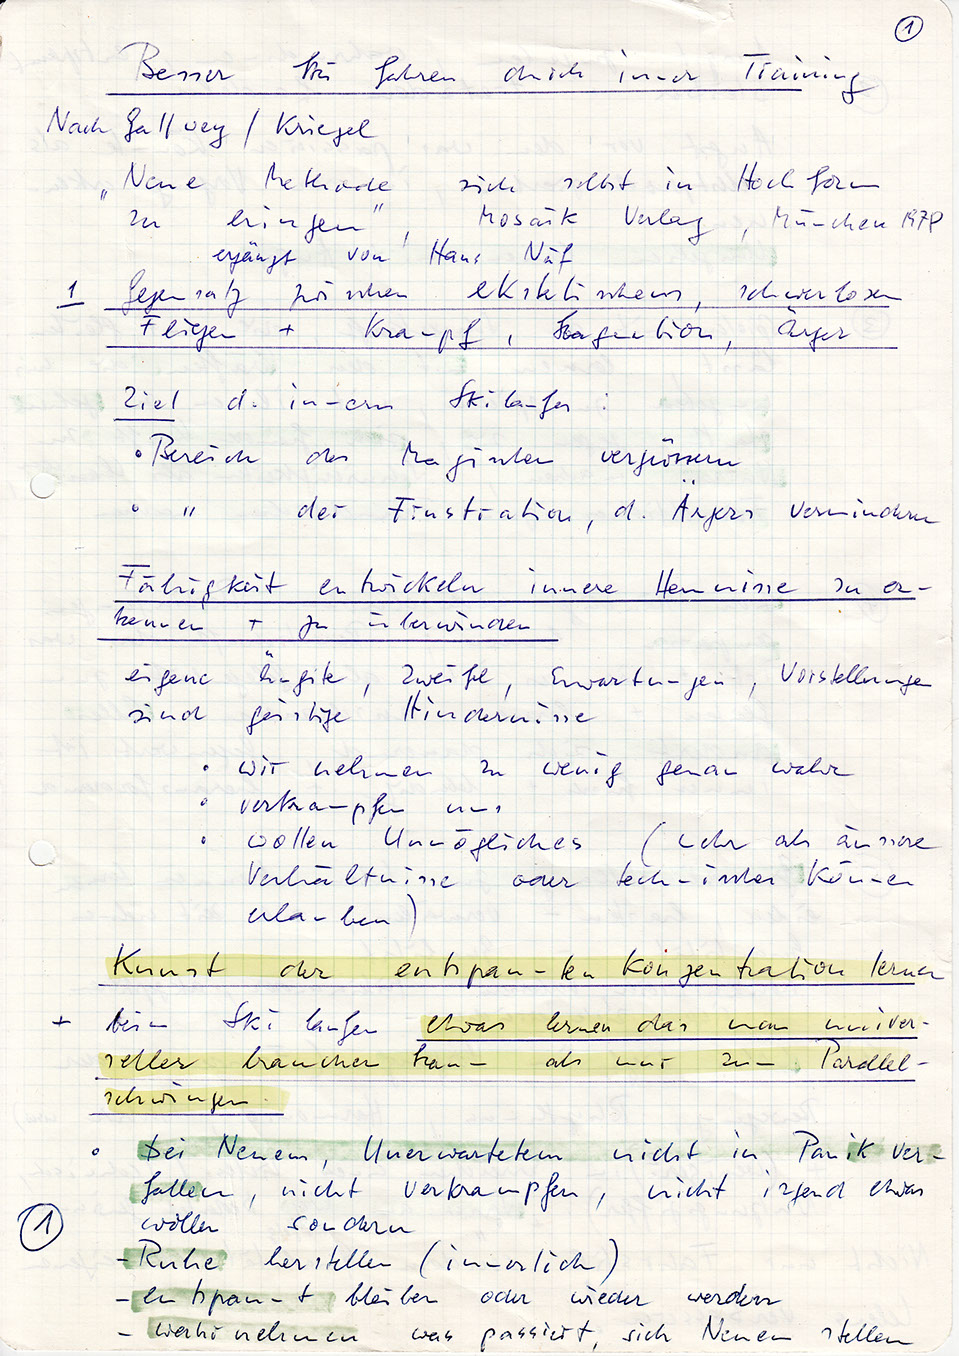 1
Besser Ski fahren durch inner Training
Nach Gallwey / Kriegel
"Neue Methode sich selbst in Hochform
zu bringen", Mosaik Verlag, München 1978
ergänzt von Hans Näf
1 Gegensatz zwischen ekstatischem, schwerlosem
Fliegen + Krampf, Stagnation, Ärger
Ziel d. innern Skilaufs:
• Bereich des Magischen vergrössern
• " der Frustration, d. Ärgers vermindern
Fähigkeit entwickeln innere Hemnisse zu er-
kennen + zu überwinden
eigene Ängste, Zweifel, Erwartungen, Vorstellungen
sind geistige Hindernisse
• wir nehmen zu wenig genau wahr
• verkrampfen uns
• wollen Unmögliches (mehr als äussere
Verhältnisse oder technisches Können
erlauben)
Kunst der entspannten Konzentration lernen
+ beim Skilaufen etwas lernen das man univer-
seller brauchen kann als nur zum Parallel-
schwingen.
• Bei Neuem, Unerwartetem nicht in Panik ver-
fallen, nicht verkrampfen, nicht irgend etwas
wollen sondern
1
- Ruhe herstellen (innerlich)
- entspannt bleiben oder wieder werden
- wahrnehmen was passiert, sich Neuem stellen